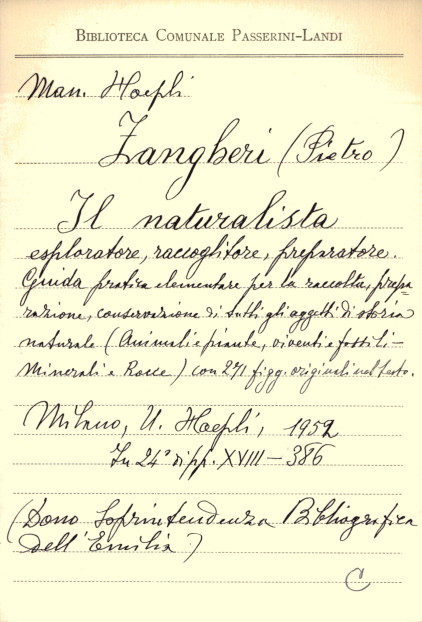 BIBLIOTECA COMUNALE PASSERINI-LANDI
Man. Hoepli
Zangheri (Pietro)
Il naturalista
esploratore, raccoglitore, preparatore.
Guida pratica elementare per la raccolta, prepa=
razione, conservazione di tutti gli oggetti di storia
naturale (Animali e piante, viventi e fossili-
Minerali e Rocce) con 271 figg. originali nel testo.
Milano, U. Hoepli, 1952
In 24° di pp. XVIII-386
(Dono Soprintendenza Bibliografica
dell'Emilia)
C